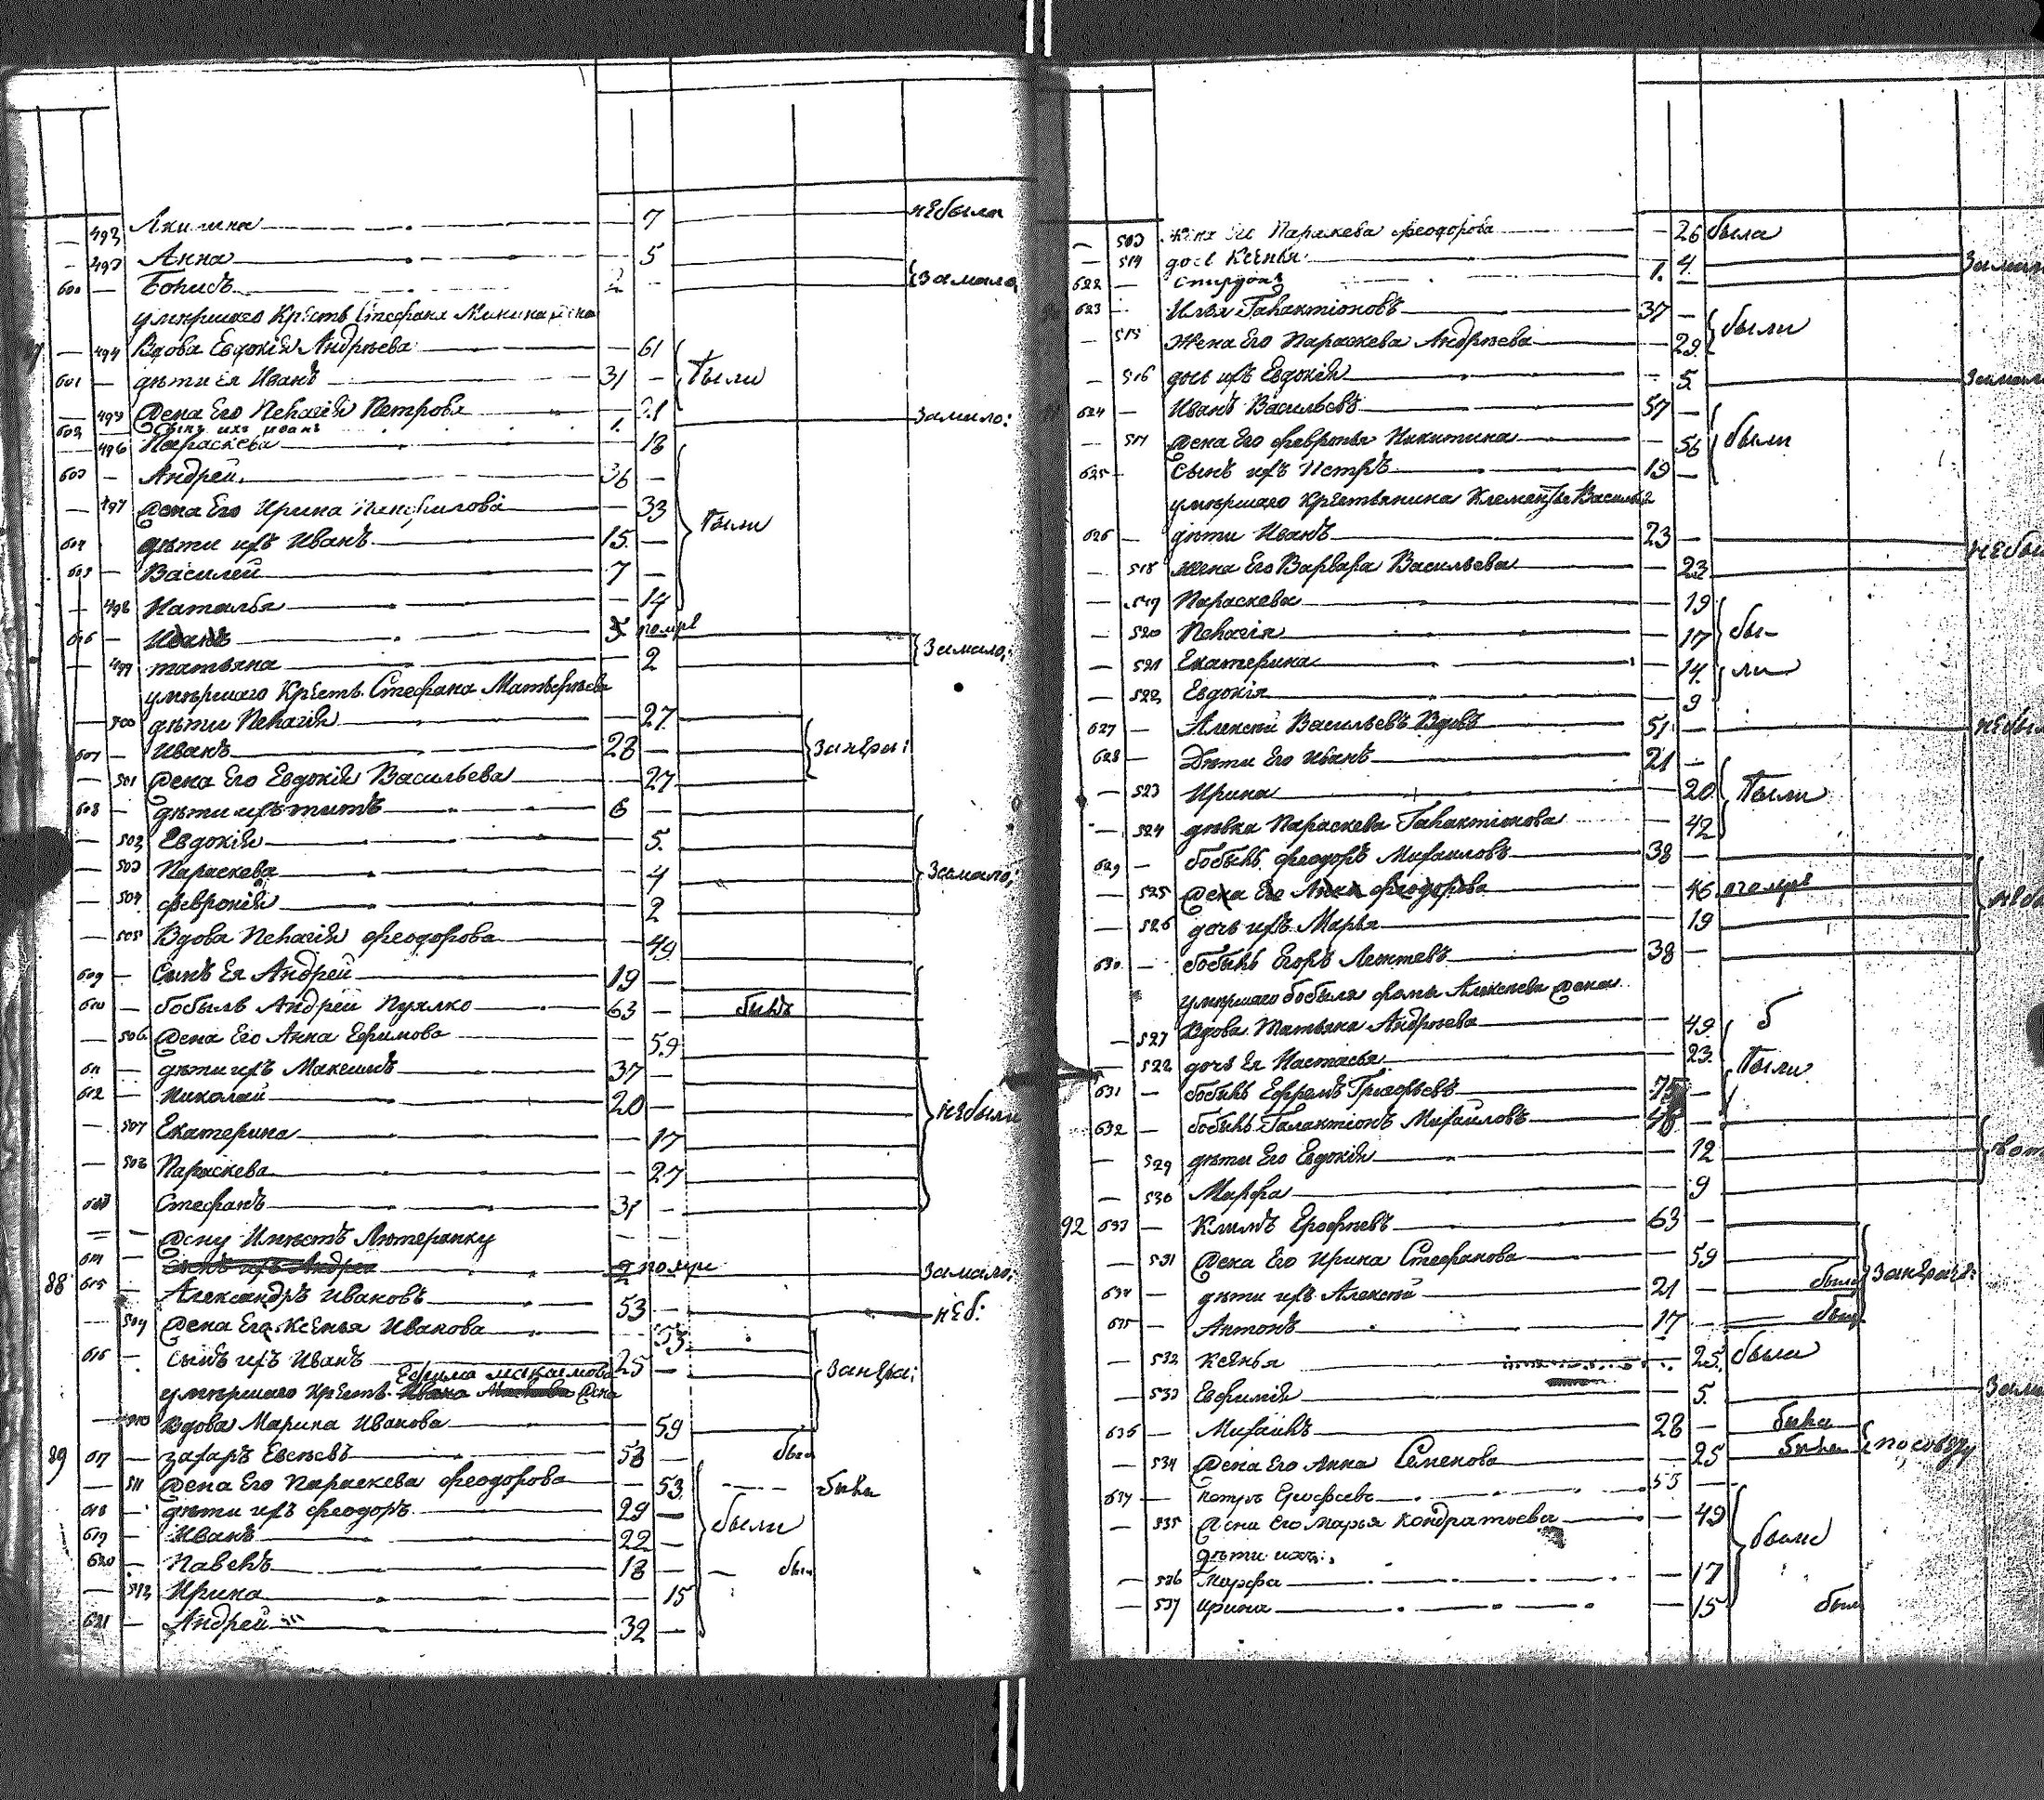 492 Акилина 7 небыла
493 Анна 5
600 Борисъ 2 замало
умершаго Крестъ Стефана Минина жена
494 Вдова Евдокія Андреева 61
601 дѣти ея Иванъ 31 были
495 жена Его Пелагія Петрова замало:
602 Сынъ ихъ Иванъ 1.
496 Параскева 18
603 Андрей 36
497 жена Его Ирина 33 были
604 дѣти ихъ Иванъ 15
605 Василей 7
498 Наталья 14
606 Иванъ 5 помре
499 татьяна 2 замало:
умершаго Крестъ Стефана Матвѣева
500 дѣти Пелагія 27
607 Иванъ 28
501 жена Его Евдокія Васильева 27
608 дѣти ихъ титъ 6
502 Евдокія 5.
503 Параскева 4 замало;
504 феврокія 2
505 Вдова Пелагія феодорова 49
609 Сынъ Ея Андрей 19
610 бобыль Андрей Пуялко 63 былъ
506 жена Его Анна Ефимова 59
611 дѣти ихъ Максимъ 37
612 Николай 20 небыли
507 Екатерина 17
508 Параскева 27
613 Стефанъ 31
жену Имѣетъ Лютеранку
614 сынъ ихъ Андрей 2 помре замало:
88 615 Александръ Ивановъ 53 неб:
509 жена Его Ксенья Иванова 53
616 сынъ ихъ Иванъ 25
Ефима максимова
умершаго крестъ жена
510 Вдова Марина Иванова 59
89 617 захаръ Евсѣевъ 53 былъ
511 жена Его Параскева феодорова 53 была
618 дѣти ихъ феодоръ 29
619 Иванъ 22 были
620 Павелъ 18
512 Ирина 15
621 Андрей 32
513 жена Параскева феодорова 26 была
514 дочь Ксенья 4
622 Спиридонъ 1.
623 Илья Галактіоновъ 37
515 Жена Его Параскева Андреева 29 были
516 дочь ихъ Евдокія 5
624 Иванъ Васильевъ 57
517 жена Его февронья Никитина 56 были
625 Сынъ ихъ Петръ 19
умершаго Крестьянина Климентья Васильева
626 дѣти Иванъ 23
518 жена Его Варвара Васильева 23
519 Параскева 19
520 Пелагія 17 бы-
521 Екатерина 14 ли
522 Евдокія 9
627 Алексѣй Васильевъ Вдовъ 51
628 Дѣти Его Иванъ 21
523 Ирина 20 были
524 дѣвка Параскева Галактіонова 42
629 бобыль феодоръ Михаиловъ 38
525 жена Его Анна феодорова 46
526 дочь ихъ Марья 19
630 бобыль Егоръ Леонтевъ 38
умершаго бобыля фомы Алексѣева жена
527 Вдова Татьяна Андреева 49
дочь Ея Настасья 23 были
631 бобыль Ефремъ Григорьевъ
632 бобыль Галактіонъ Михайловъ
529 дѣти Его Евдокія 12
530 Марфа 9
92 633 Климъ Ерофѣевъ 63
531 жена Его Ирина Стефанова 59
634 дѣти ихъ Алексѣй 21
635 Антонъ 17
532 Ксенья 25
533 Евфимія 5.
636 Михаилъ 28
534 жена Его Анна Семенова 25
637 петръ Ерофеевъ 55
535 жена Его Марья Кондратьева 49
дѣти ихъ: были
536 Марфа 17
537 ирина 15